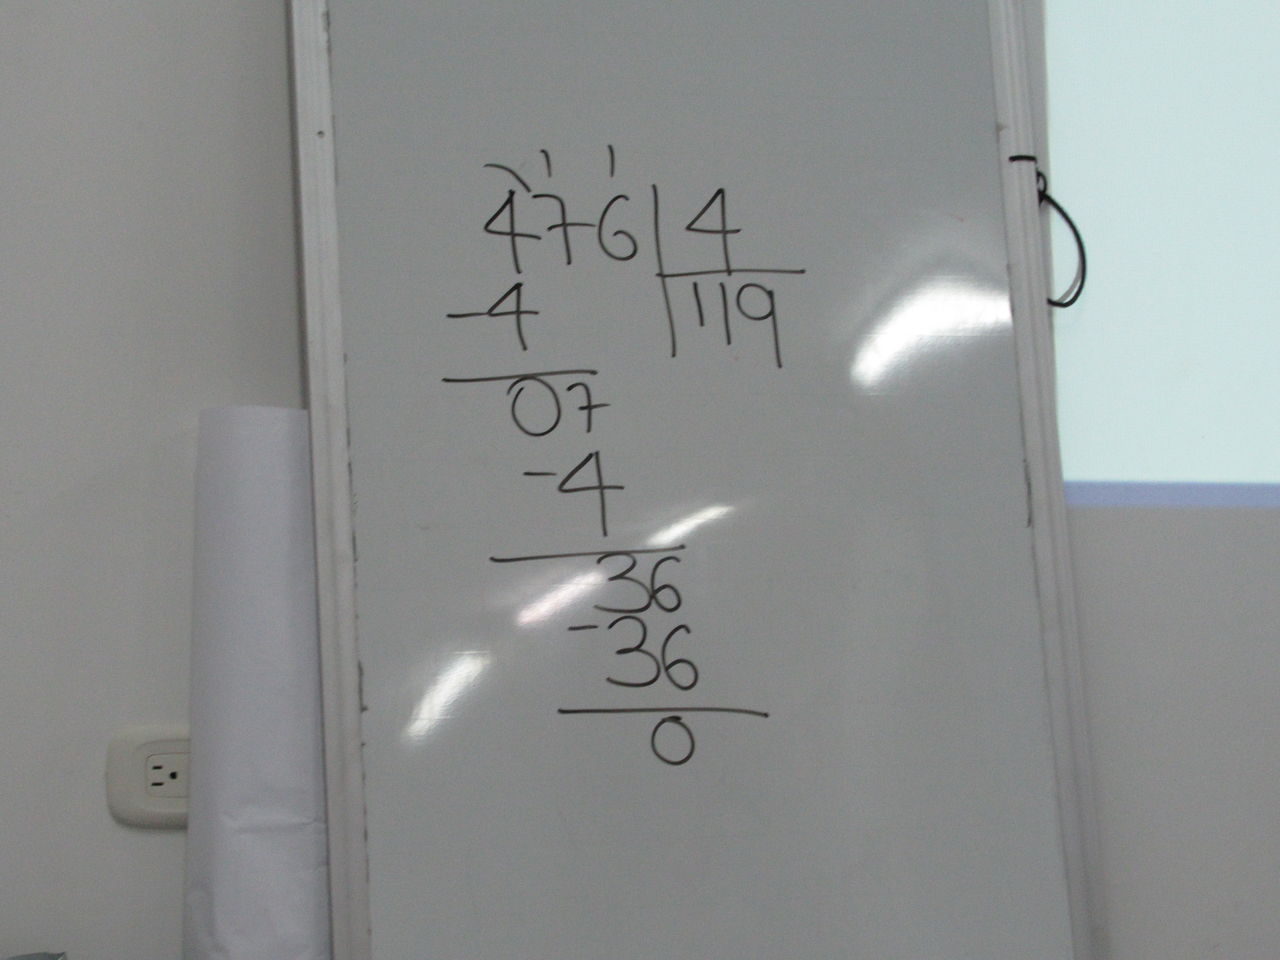 476 4
-4 119
07
-4
36
-36
0